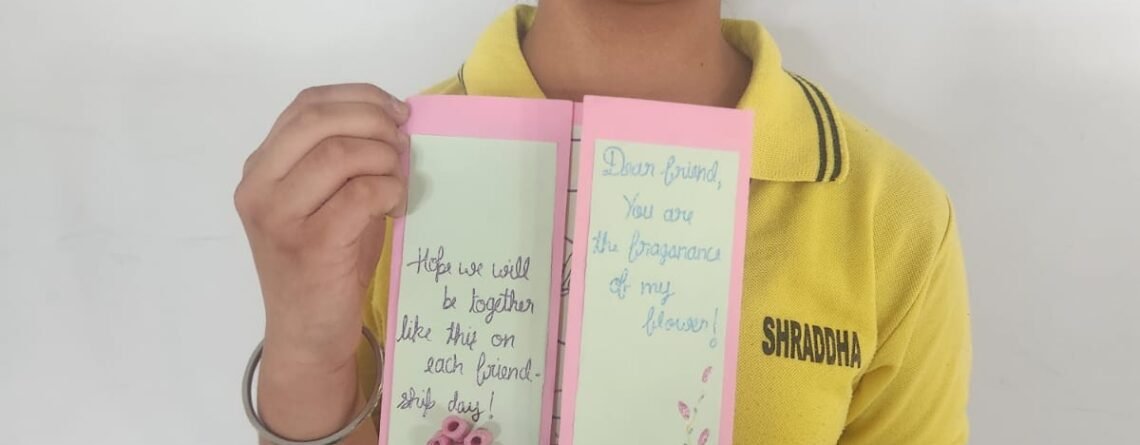 Hope we will
be together
like this on
each friend-
ship day!
Dear friend,
You are
the fraganance
of my
flower!
SHRADDHA